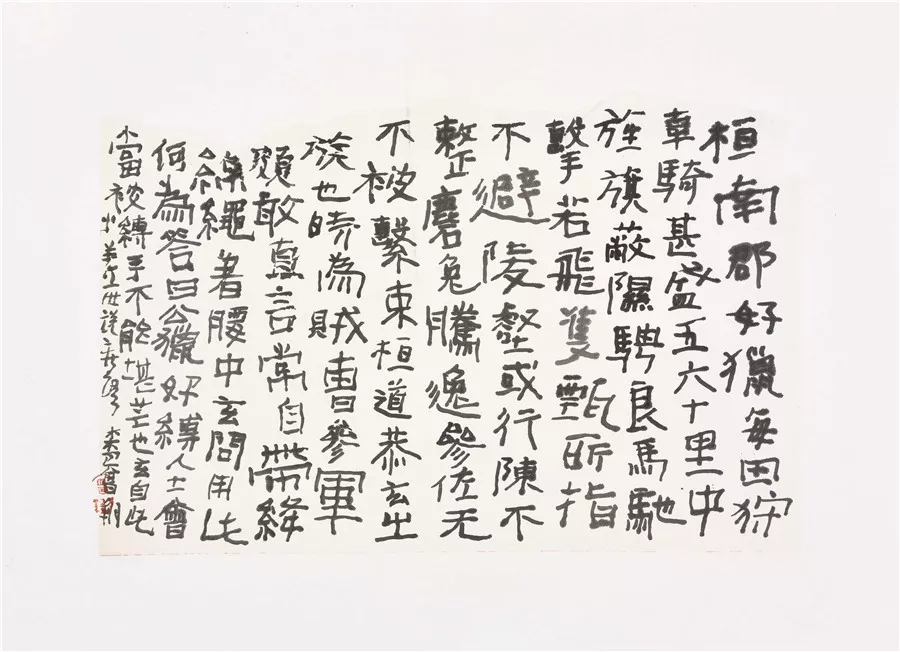 桓南郡好獵每田狩
車騎甚盛五六十里中
旌旗蔽隰騁良馬馳
擊若飛隻甄所指
不避陵壑或行陳不
整麏兔騰逸參佐无
不被繫束桓道恭玄之
族也時為賊曹參軍
頗敢直言常自帶絳
綿繩著腰中玄問用此
何為答曰公獵好縛人士會
當被縛手不能堪芒也玄自此
小 世說